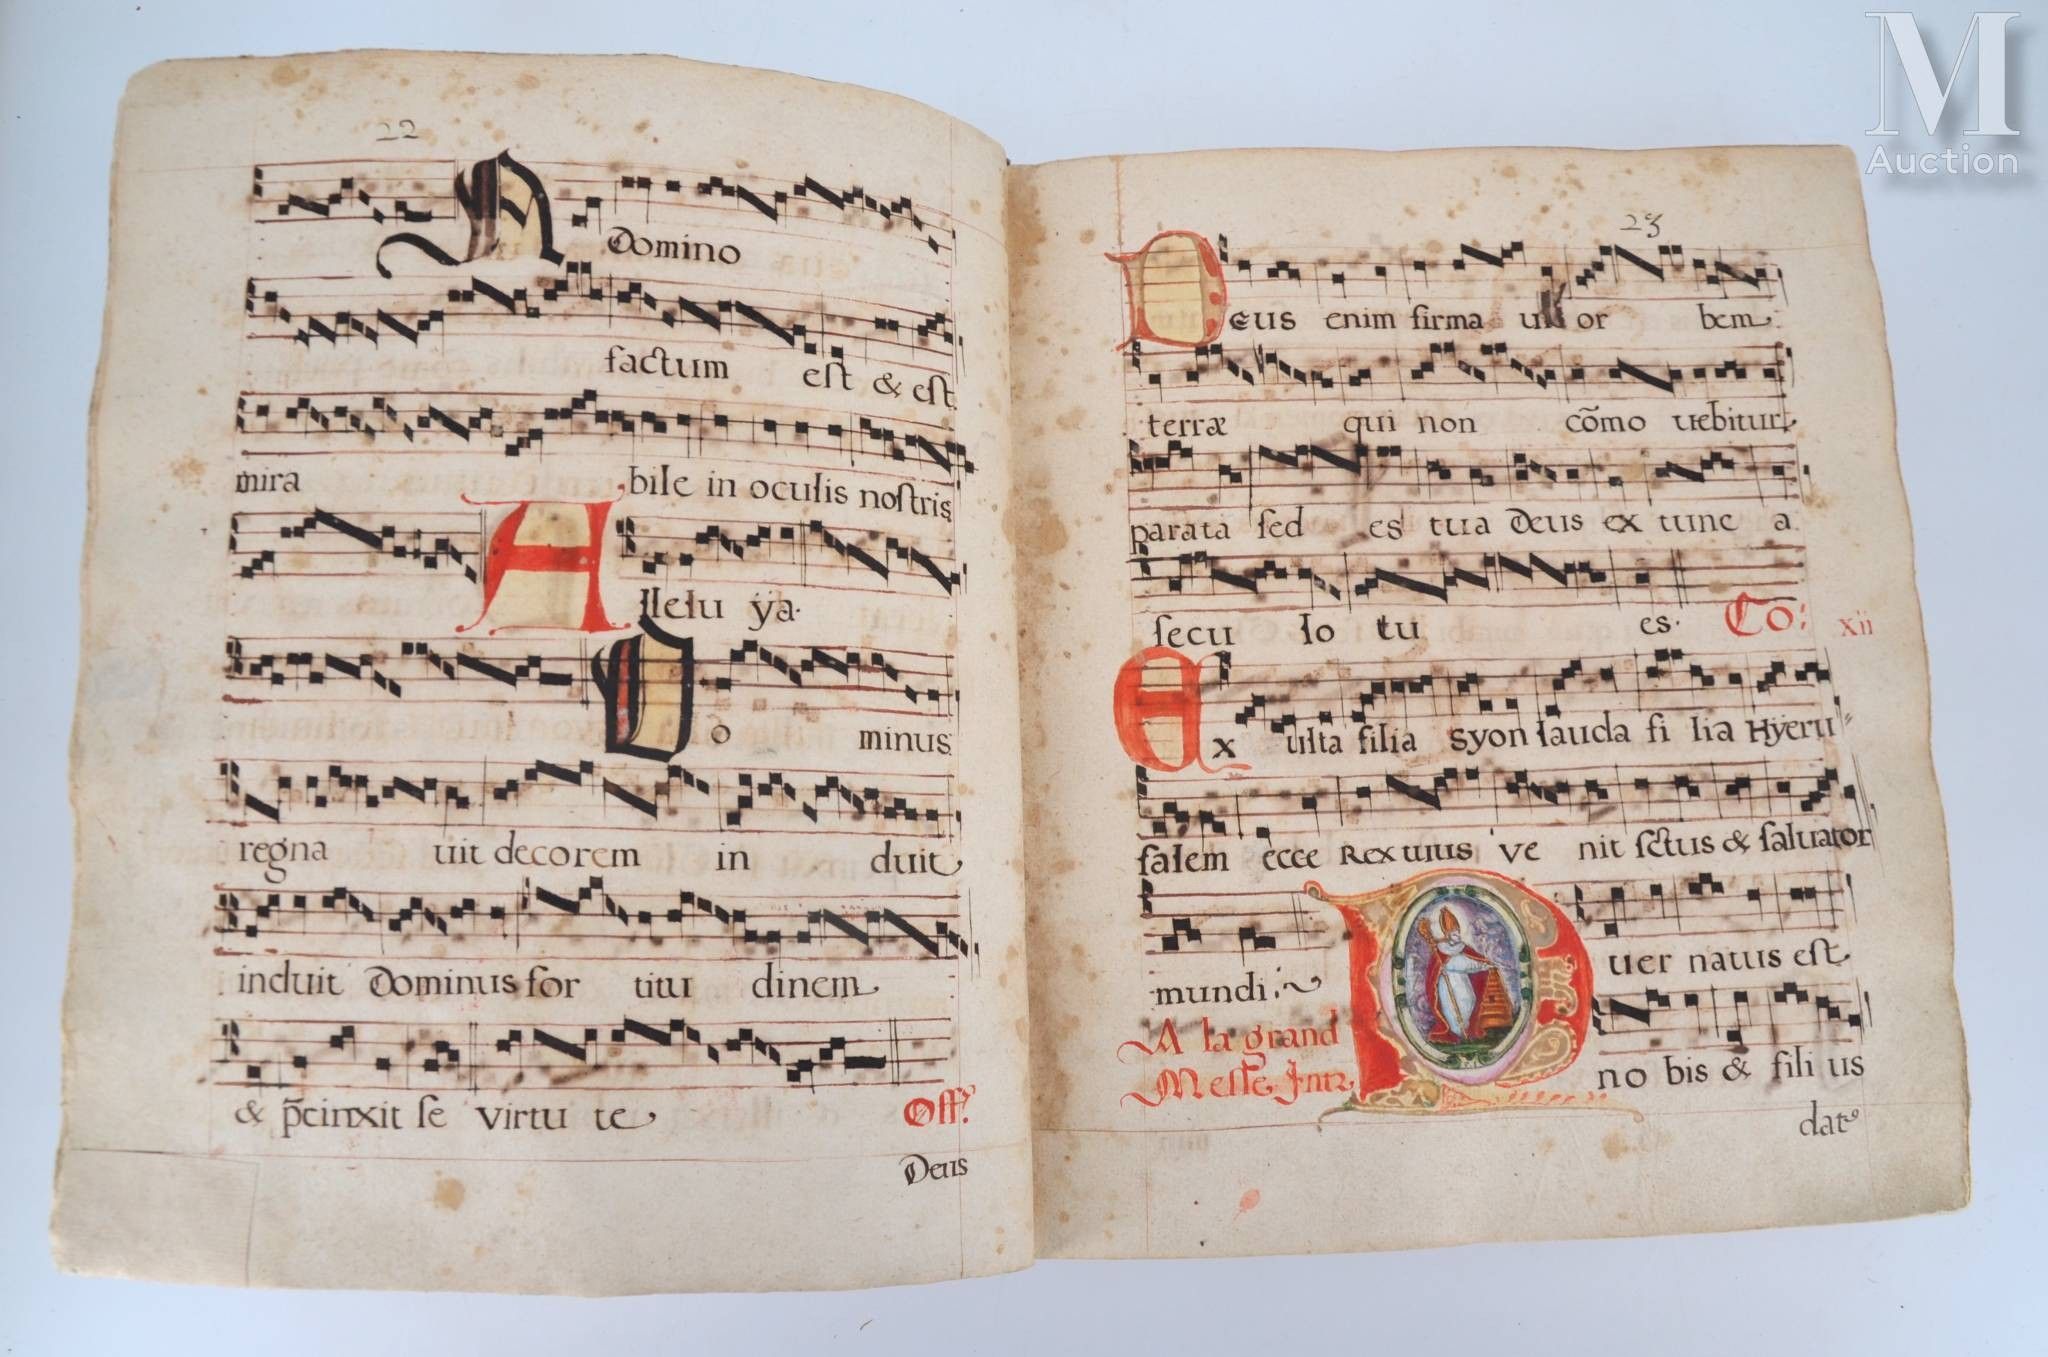 22
A Domino
factum est & est
mira bile in oculis nostris
Allelu ÿa.
Do minus
regna uit decorem in duit
induit Dominus for titu dinem
& p̄cinxit se virtu te Off.
Deus
23
Deus enim firma uit or bem
terræ qui non cōmo uebitur
parata sed es tua Deus ex tunc a
secu lo tu es. Co: xii
Ex ulta filia syon lauda fi lia Hÿeru
salem ecce Rex tuus ve nit sctus & saluator
mundi. Puer natus est
A la grand
Messe Intr. no bis & fili us
dat9
M
Auction